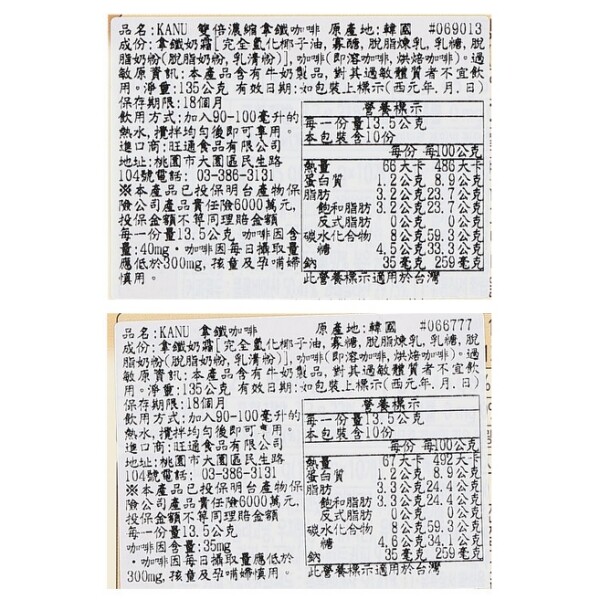 品名:KANU 雙倍濃縮拿鐵咖啡 原產地:韓國 #069013
成份:拿鐵奶霜[完全氫化椰子油,寡醣,脫脂煉乳,乳糖,脫
脂奶粉(脫脂奶粉,乳清粉)],咖啡(即溶咖啡,烘焙咖啡)。過
敏原資訊:本產品含有牛奶製品,對其過敏體質者不宜飲
用。淨重:135公克 有效日期:如包裝上標示(西元年.月.日)
保存期限:18個月
飲用方式:加入90-100毫升的
熱水,攪拌均勻後即可享用。
進口商:旺通食品有限公司
地址:桃園市大園區民生路
104號電話: 03-386-3131
※本產品已投保明台產物保
險公司產品責任險6000萬元,
投保金額不等同理賠金額
每一份量13.5公克 咖啡因含
量:40mg·咖啡因每日攝取量
應低於300mg,孩童及孕哺婦
慎用。
營養標示
每一份量13.5公克
本包裝含10份
每份 每100公克
熱量 66大卡 486大卡
蛋白質 1.2公克 8.9公克
脂肪 3.2公克 23.7公克
飽和脂肪 3.2公克 23.7公克
反式脂肪 0公克 0公克
碳水化合物 8公克 59.3公克
糖 4.5公克 33.3公克
鈉 35毫克 259毫克
此營養標示適用於台灣
品名:KANU 拿鐵咖啡 原產地:韓國 #066777
成份:拿鐵奶霜[完全氫化椰子油,寡糖,脫脂煉乳,乳糖,脫
脂奶粉(脫脂奶粉,乳清粉)],咖啡(即溶咖啡,烘焙咖啡)。過
敏原資訊:本產品含有牛奶製品,對其過敏體質者不宜飲
用。淨重:135公克 有效日期:如包裝上標示(西元年.月.日)
保存期限:18個月
飲用方式:加入90-100毫升的
熱水,攪拌均勻後即可享用。
進口商:旺通食品有限公司
地址:桃園市大園區民生路
104號電話: 03-386-3131
※本產品已投保明台產物保
險公司產品責任險6000萬元,
投保金額不等同理賠金額
每一份量13.5公克
咖啡因含量:35mg
·咖啡因每日攝取量應低於
300mg,孩童及孕哺婦慎用。
營養標示
每一份量13.5公克
本包裝含10份
每份 每100公克
熱量 67大卡 492大卡
蛋白質 1.2公克 8.9公克
脂肪 3.3公克 24.4公克
飽和脂肪 3.3公克 24.4公克
反式脂肪 0公克 0公克
碳水化合物 8公克 59.3公克
糖 4.6公克 34.1公克
鈉 35毫克 259毫克
此營養標示適用於台灣